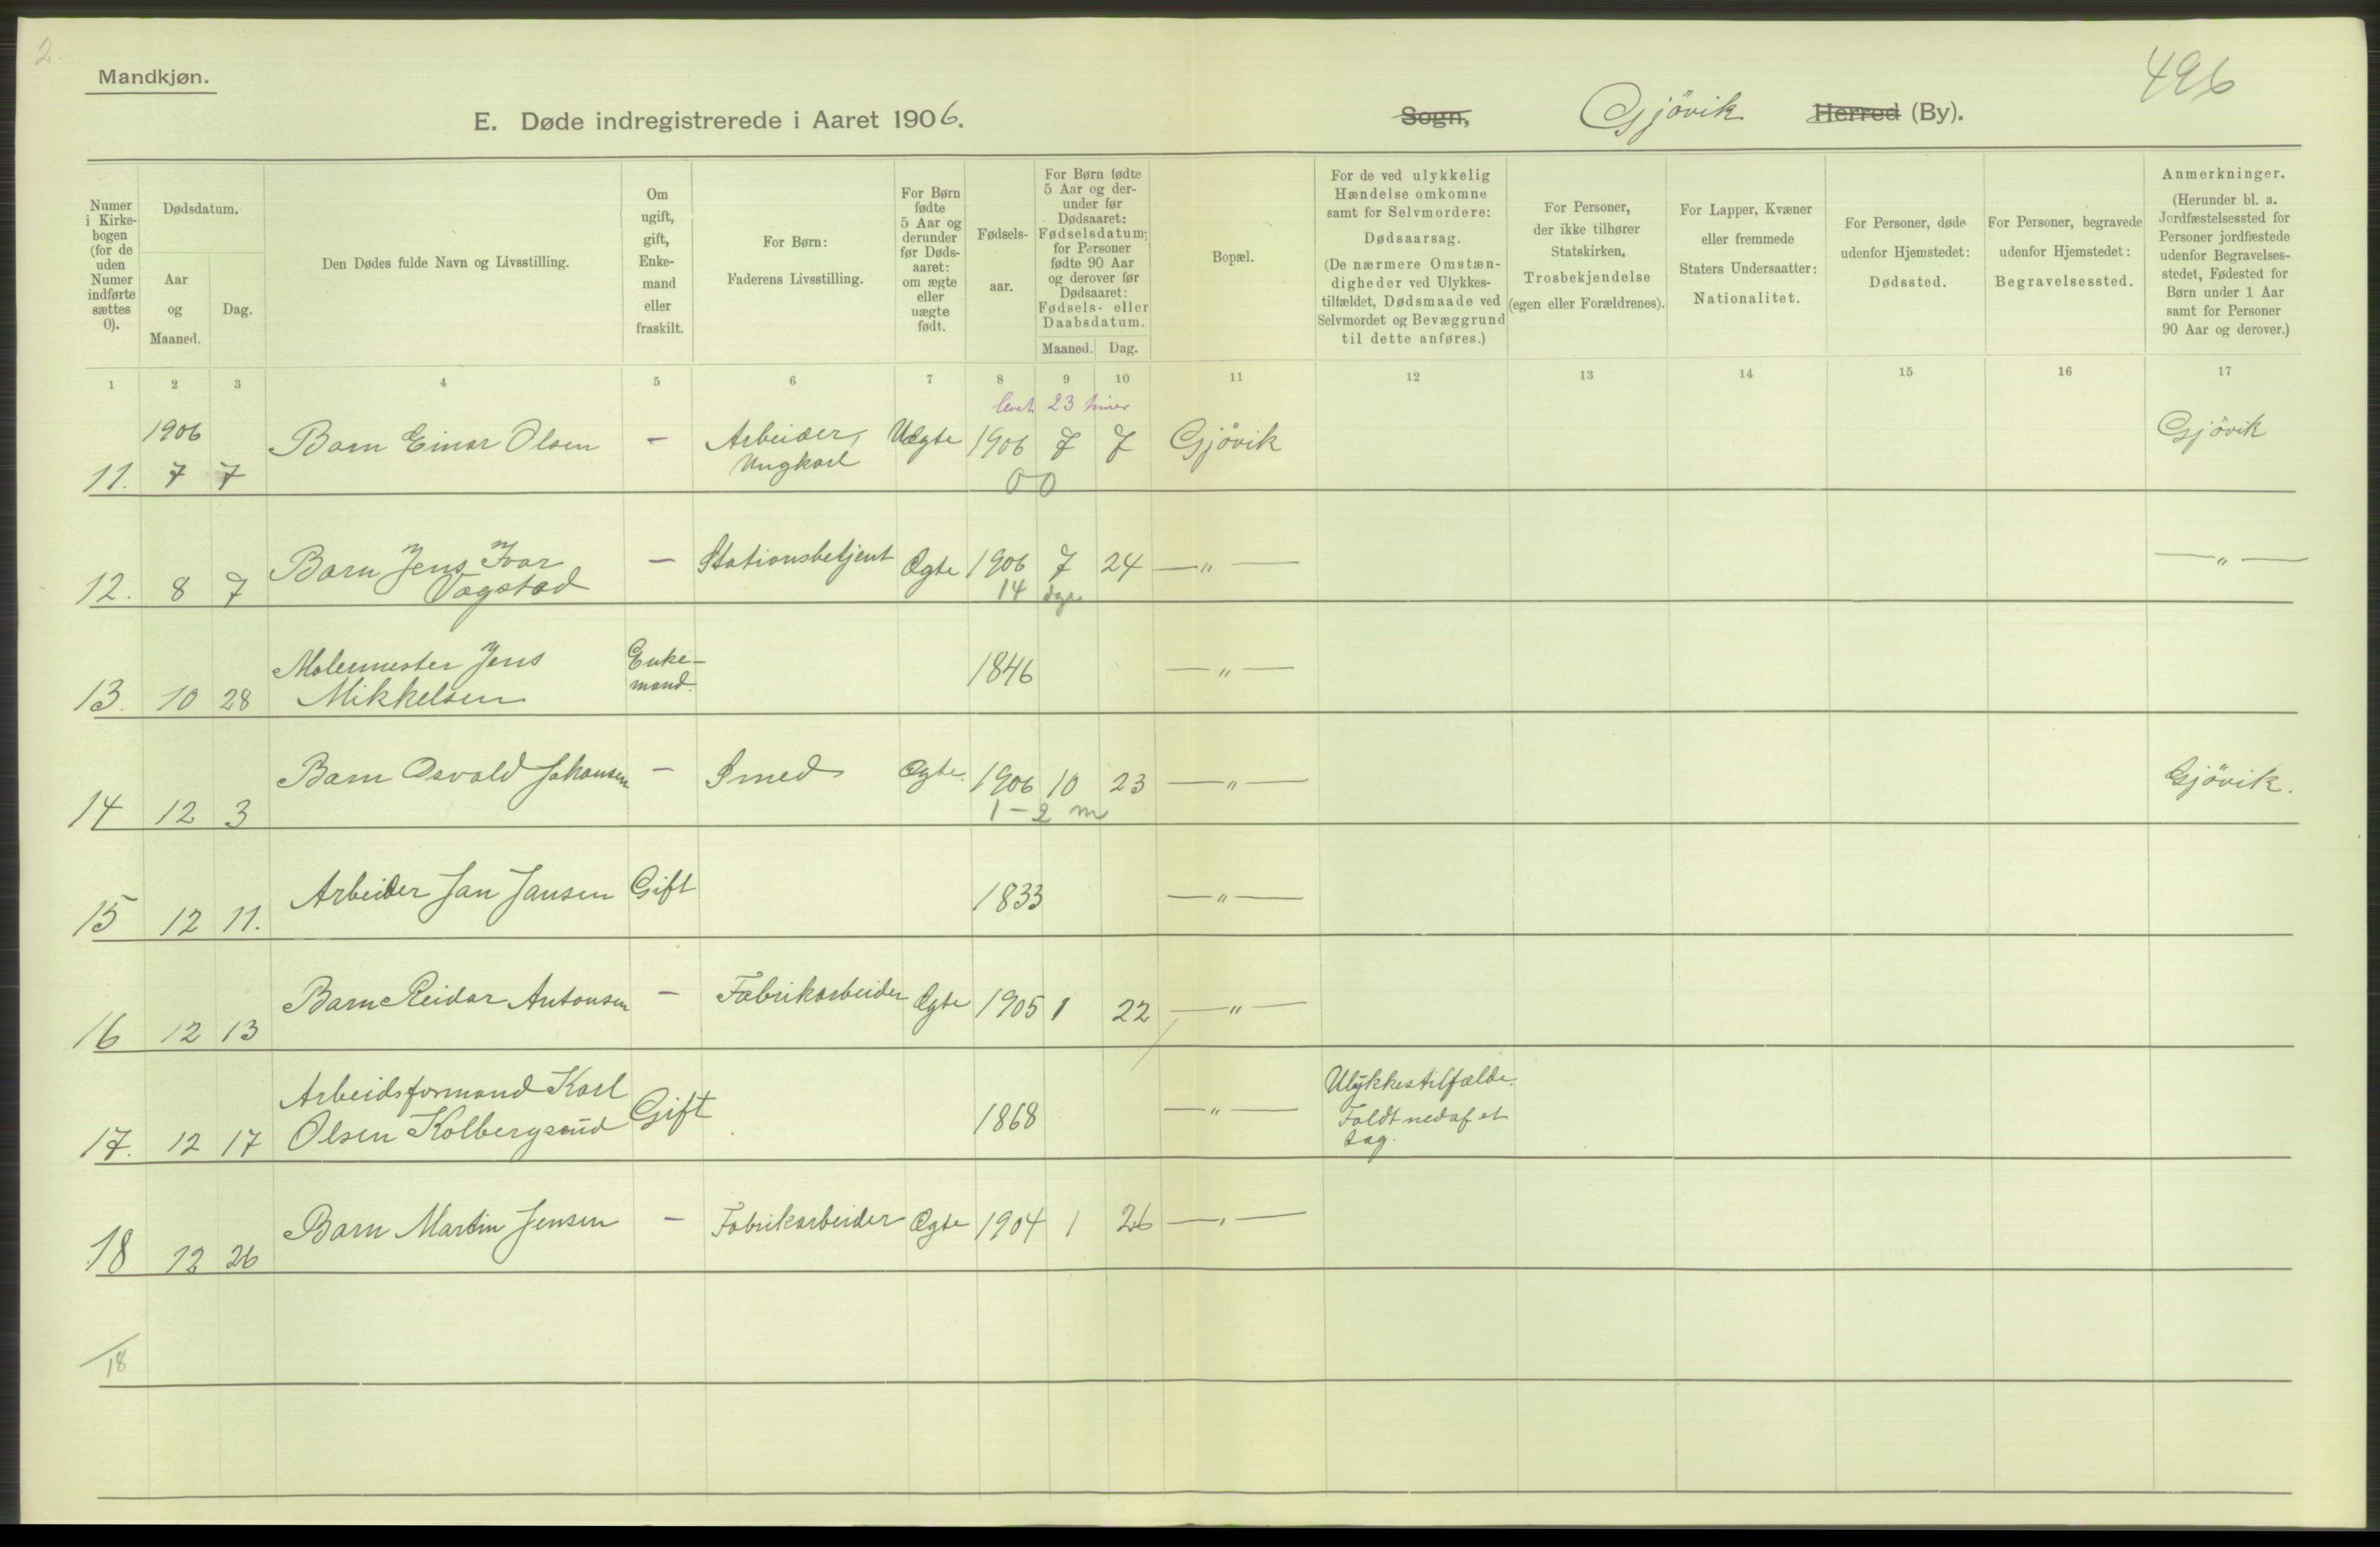 2.
Mandkjøn.
496
E. Døde indregistrerede i Aaret 1906.
Sogn, Gjövik Herred (By).
Numer i Kirkebogen (for de uden Numer indførte sættes 0).
Dødsdatum.
Aar og Maaned.
Dag.
Den Dødes fulde Navn og Livsstilling.
Om ugift, gift, Enkemand eller fraskilt.
For Børn:
Faderens Livsstilling.
For Børn fødte 5 Aar og derunder før Dødsaaret: om ægte eller uægte født.
Fødselsaar.
For Børn fødte 5 Aar og derunder før Dødsaaret: Fødselsdatum; for Personer fødte 90 Aar og derover før Dødsaaret: Fødsels- eller Daabsdatum.
Maaned. Dag.
Bopæl.
For de ved ulykkelig Hændelse omkomne samt for Selvmordere: Dødsaarsag. (De nærmere Omstændigheder ved Ulykkestilfældet, Dødsmaade ved Selvmordet og Bevæggrund til dette anføres.)
For Personer, der ikke tilhører Statskirken, Trosbekjendelse (egen eller Forældrenes).
For Lapper, Kvæner eller fremmede Staters Undersaatter: Nationalitet.
For Personer, døde udenfor Hjemstedet: Dødssted.
For Personer, begravede udenfor Hjemstedet: Begravelsessted.
Anmerkninger. (Herunder bl. a. Jordfæstelsessted for Personer jordfæstede udenfor Begravelsesstedet, Fødested for Børn under 1 Aar samt for Personer 90 Aar og derover.)
1 2 3 4 5 6 7 8 9 10 11 12 13 14 15 16 17
levet 23 timer
1906
11. 7 7 Barn Einar Olsen — Arbeider, Ungkarl Uægte 1906 7 7 Gjövik Gjövik
00
12. 8 7 Barn Jens Ivar Vagstad — Stationsbetjent Ægte 1906 7 24 —„— —„—
14 dge
13. 10 28 Malermester Jens Mikkelsen Enkemand. 1846 —„—
14 12 3 Barn Osvald Johansen — Smed Ægte. 1906 10 23 —„— Gjövik.
1-2 m
15 12 11. Arbeider Jan Jansen Gift 1833 —„—
16 12 13 Barn Reidar Antonsen — Fabrikarbeider Ægte 1905 1 22 —„—
17. 12 17 Arbeidsformand Karl Olsen Kolbergsrud Gift 1868 —„— Ulykkestilfælde. Faldt ned af et tag.
18 12 26 Barn Martin Jensen — Fabrikarbeider Ægte 1904 1 26 —„—
18